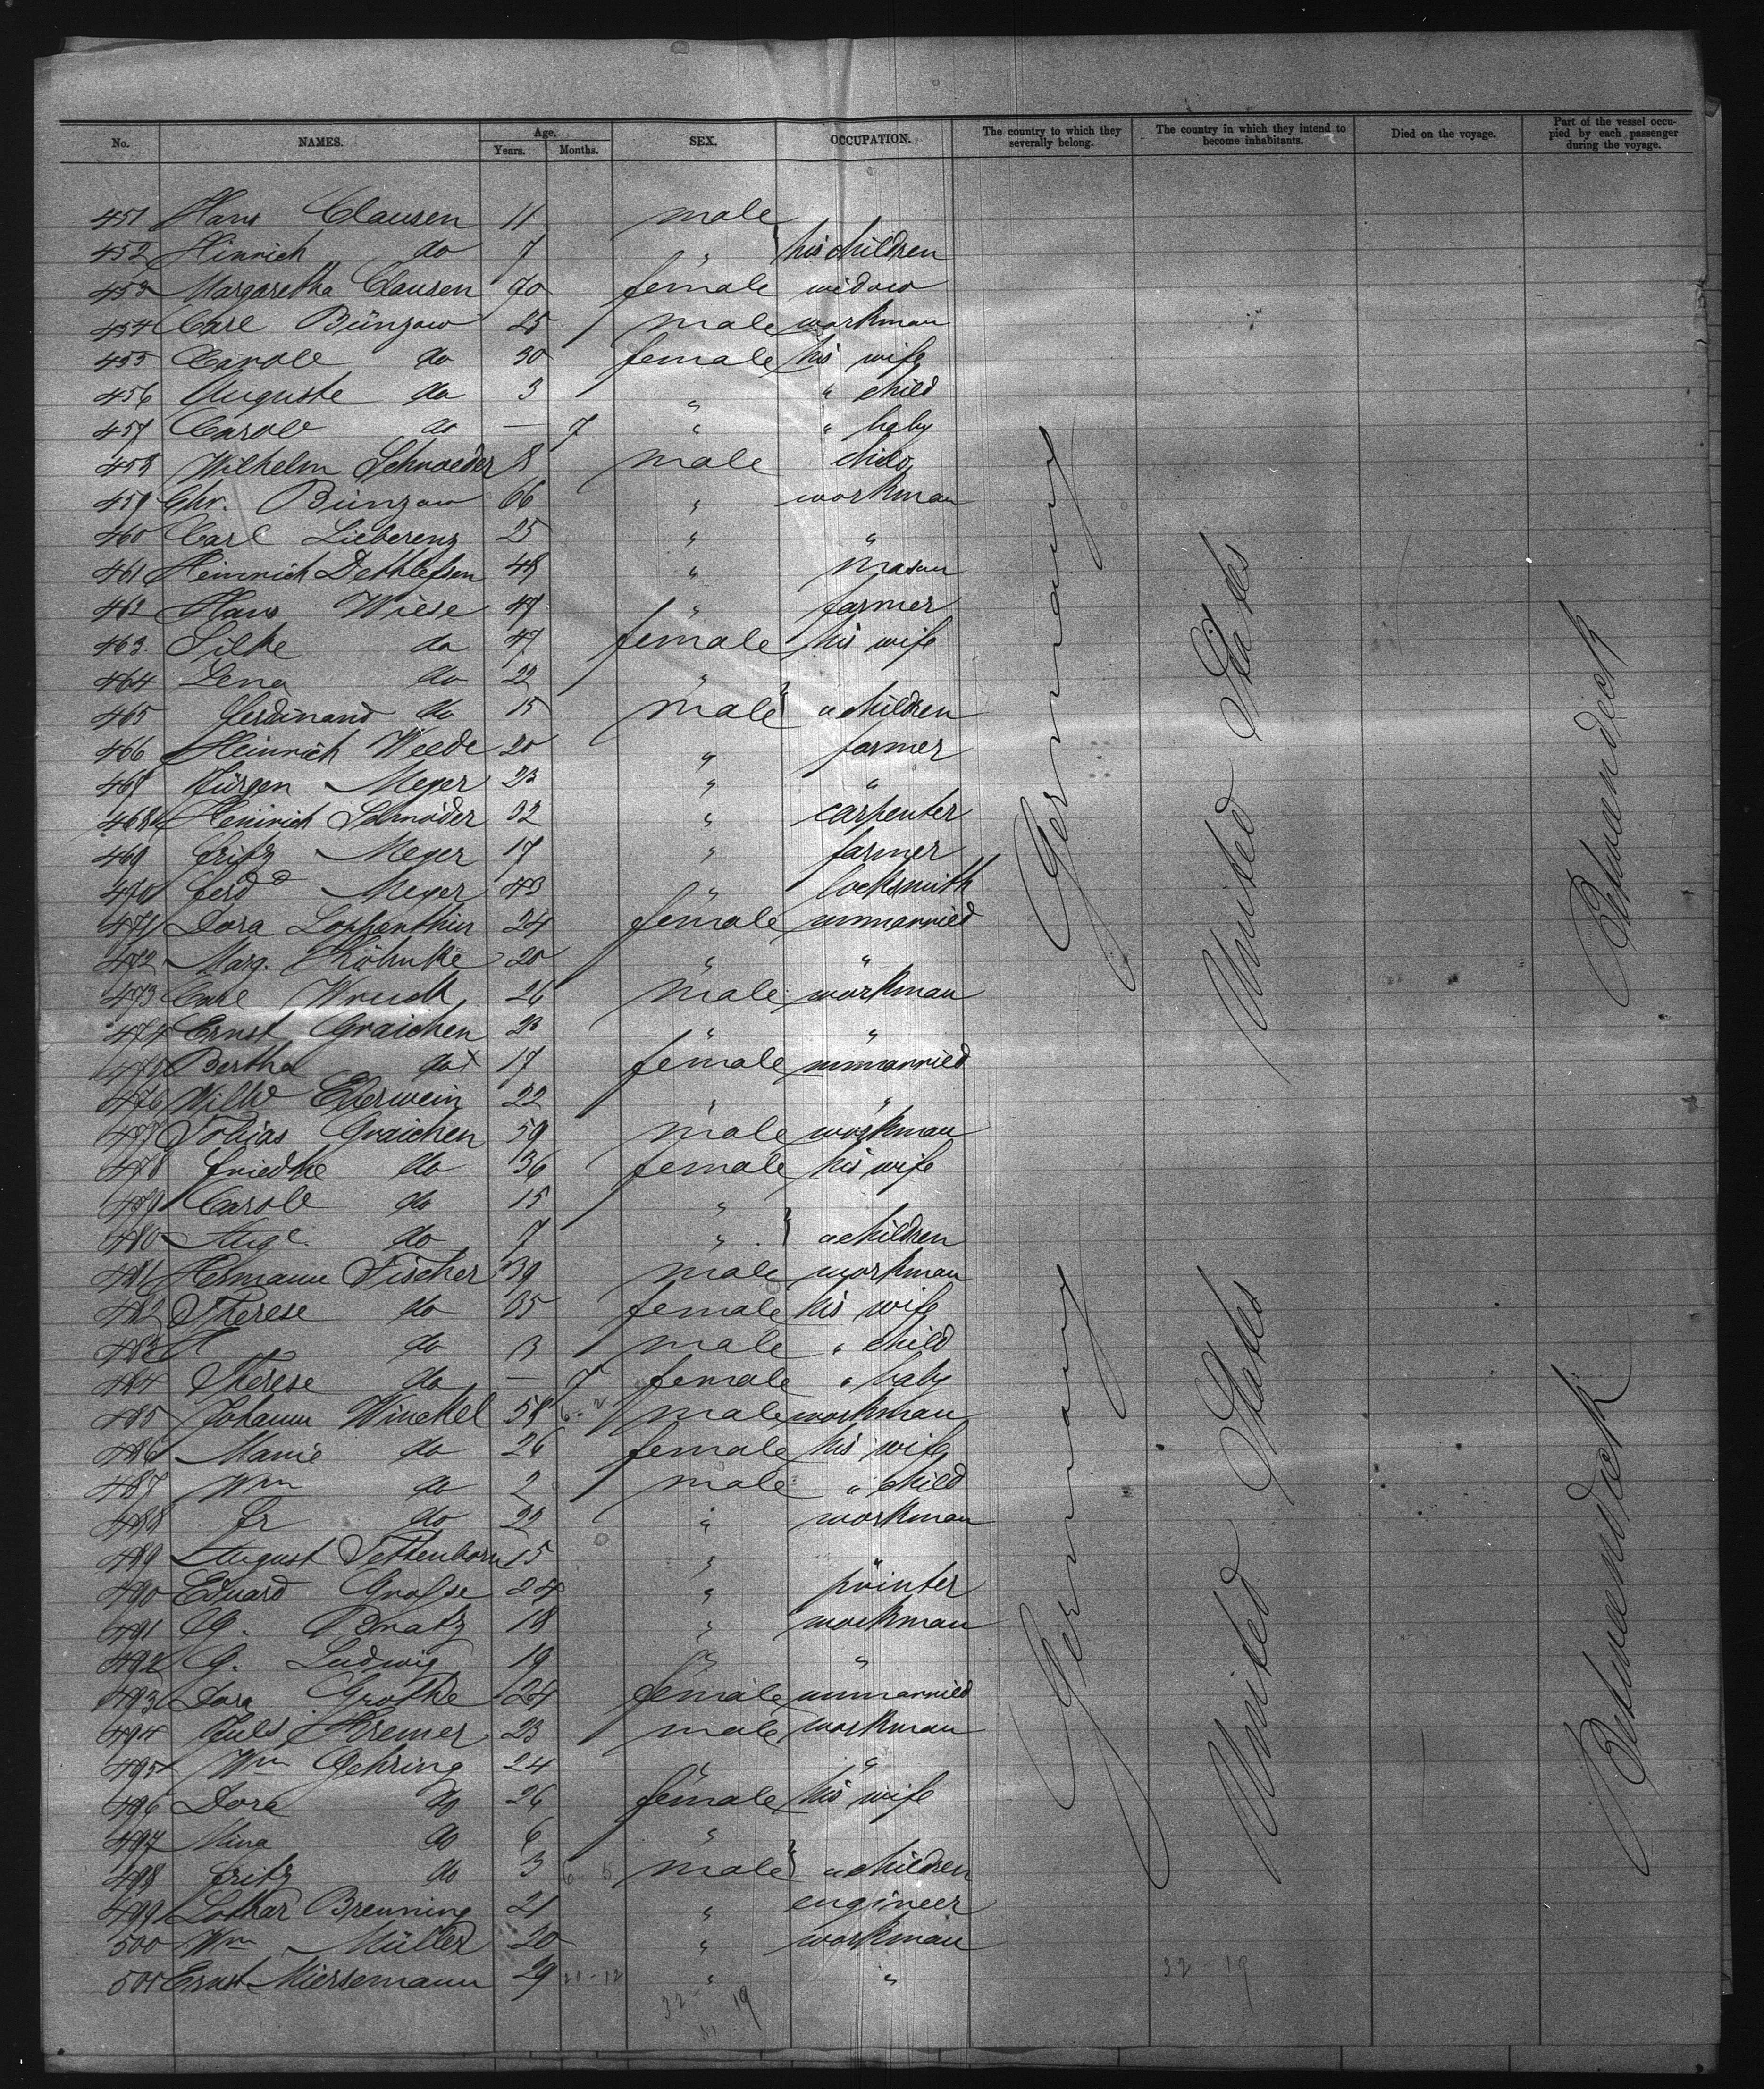 No. NAMES. Age. Years. Months. SEX. OCCUPATION. The country to which they severally belong. The country in which they intend to become inhabitants. Died on the voyage. Part of the vessel occupied by each passenger during the voyage.
451 Hans Clausen 11 male
452 Hinrich do 7 " his children
453 Margaretha Clausen 70 female widow
454 Carl Bünzow 25 male workman
455 Carole do 30 female his wife
456 Auguste do 3 " " child
457 Carole do — 7 " " baby
458 Wilhelm Schroeder 8 male child
459 Chr. Bünzow 66 " workman
460 Carl Lieberenz 25 " "
461 Heinrich Dethlefsen 48 " mason
462 Hans Wiese 47 " farmer
463 Silke do 47 female his wife
464 Lena do 22 "
465 Ferdinand do 15 male " children
466 Heinrich Weede 20 " farmer
467 Jürgen Meyer 23 " "
468 Heinrich Schröder 32 " carpenter
469 Fritz Meyer 17 " farmer
470 Ferd Meyer 43 " locksmith
471 Dora Lophenthien 24 female unmarried
472 Marg. Köhnke 20 " "
473 Carl 26 male workman
474 Ernst Graichen 23 " "
475 Bertha do 17 female unmarried
476 Wilhe Eberwein 22 " "
477 Tobias Graichen 59 male workman
478 Friedke do 36 female his wife
479 Carole do 15 "
480 Auge do 7 " " children
481 Hermann Fischer 39 male workman
482 Therese do 35 female his wife
483 do 3 male " child
484 Therese do — 7 female " baby
485 Johann Winckel 58 male workman
486 Marie do 26 female his wife
487 Wm do 2 male " child
488 Fr do 22 " workman
489 August Tettenborn 15 " "
490 Eduard Grosse 24 " printer
491 G. Bratz 18 " workman
492 G. Ludwig 19 " "
493 Dora Grothe 24 female unmarried
494 Juls Kremer 23 male workman
495 Wm Gehring 24 " "
496 Dora do 26 female his wife
497 Mina do 6 "
498 Fritz do 3 male " children
499 Lothar Breuning 21 " engineer
500 Wm Müller 20 " workman
501 Ernst Miersemann 29 20-12 " "
32 - 19
32 19
Germany
United States
Betweendeck
Germany
United States
Betweendeck